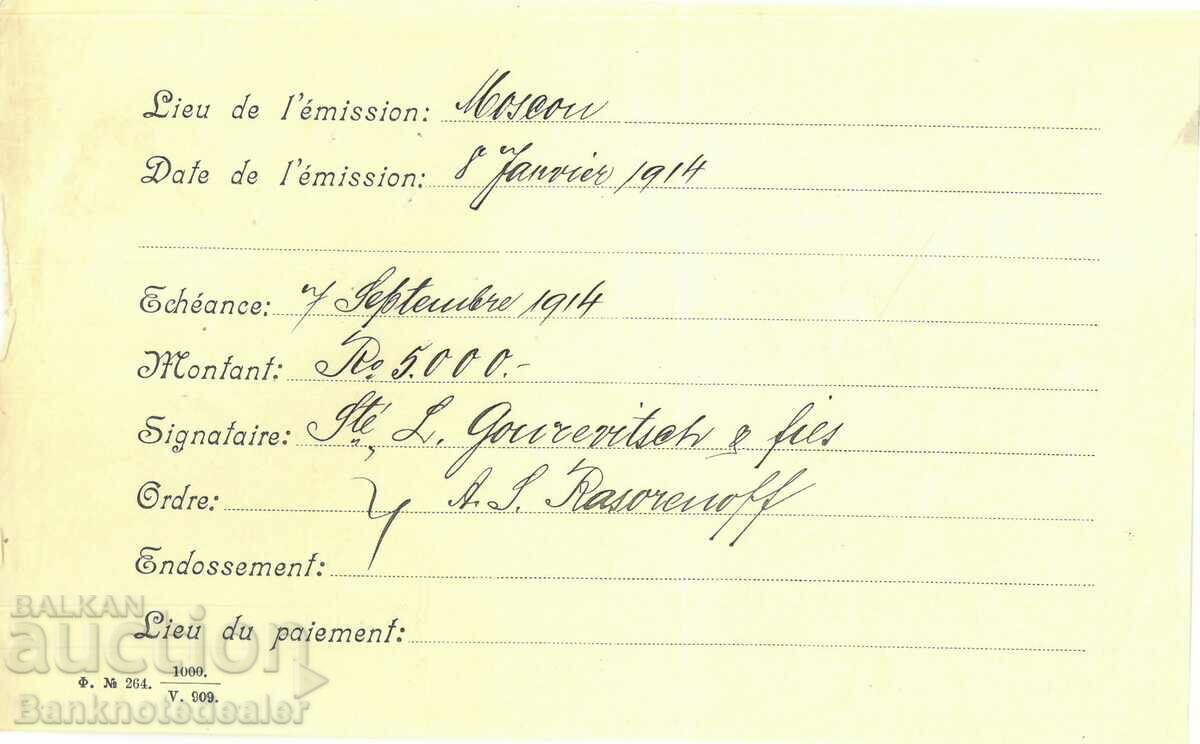 Lieu de l'émission: Moscou
Date de l'émission: 8 Janvier 1914
Echéance: 7 Septembre 1914
Montant: Ro 5.000.-
Signataire: Sté L. Gourevitsch & fils
Ordre: A. S. Rasorenoff
Endossement:
Lieu du paiement:
Ф. № 264. 1000.
V. 909.
BALKAN
auction
Banknotedealer